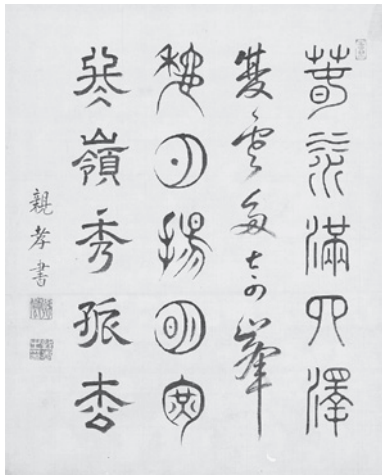 春水滿四澤
夏雲多奇峯
秋月揚明暉
冬嶺秀孤松
親孝書